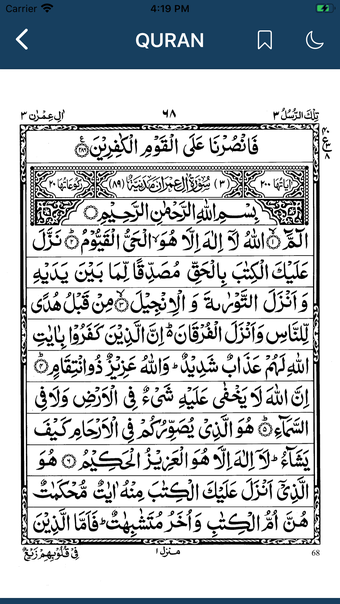 Carrier 4:19 PM
QURAN
تِلْكَ الرُّسُلُ ٣ ٦٨ اٰلِ عِمْرٰن ٣
فَانْصُرْنَا عَلَى الْقَوْمِ الْكٰفِرِيْنَ ﴿٢٨٦﴾
اٰيَاتُهَا ٢٠٠ (٣) سُوْرَةُ اٰلِ عِمْرٰنَ مَدَنِيَّةٌ (٨٩) رُكُوْعَاتُهَا ٢٠
بِسْمِ اللّٰهِ الرَّحْمٰنِ الرَّحِيْمِ
الٓمّٓ ﴿١﴾ اللّٰهُ لَاۤ اِلٰهَ اِلَّا هُوَ الْحَيُّ الْقَيُّوْمُ ﴿٢﴾ نَزَّلَ
عَلَيْكَ الْكِتٰبَ بِالْحَقِّ مُصَدِّقًا لِّمَا بَيْنَ يَدَيْهِ
وَاَنْزَلَ التَّوْرٰىةَ وَالْاِنْجِيْلَ ﴿٣﴾ مِنْ قَبْلُ هُدًى
لِّلنَّاسِ وَاَنْزَلَ الْفُرْقَانَ ؕ اِنَّ الَّذِيْنَ كَفَرُوْا بِاٰيٰتِ
اللّٰهِ لَهُمْ عَذَابٌ شَدِيْدٌ ؕ وَاللّٰهُ عَزِيْزٌ ذُو انْتِقَامٍ ﴿٤﴾
اِنَّ اللّٰهَ لَا يَخْفٰى عَلَيْهِ شَيْءٌ فِي الْاَرْضِ وَلَا فِي
السَّمَآءِ ﴿٥﴾ هُوَ الَّذِيْ يُصَوِّرُكُمْ فِي الْاَرْحَامِ كَيْفَ
يَشَآءُ ؕ لَاۤ اِلٰهَ اِلَّا هُوَ الْعَزِيْزُ الْحَكِيْمُ ﴿٦﴾ هُوَ
الَّذِيْۤ اَنْزَلَ عَلَيْكَ الْكِتٰبَ مِنْهُ اٰيٰتٌ مُّحْكَمٰتٌ
هُنَّ اُمُّ الْكِتٰبِ وَاُخَرُ مُتَشٰبِهٰتٌ ؕ فَاَمَّا الَّذِيْنَ
68 منزل ١ فِيْ قُلُوْبِهِمْ زَيْغٌ